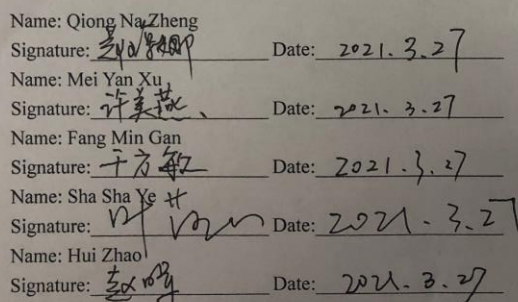 Name: Qiong Na Zheng
Signature: Date: 2021.3.27
Name: Mei Yan Xu
Signature: 许美燕、 Date: 2021.3.27
Name: Fang Min Gan
Signature: 干方敏 Date: 2021.3.27
Name: Sha Sha Ye
Signature: 叶 Date: 2021.3.27
Name: Hui Zhao
Signature: 赵 Date: 2021.3.27